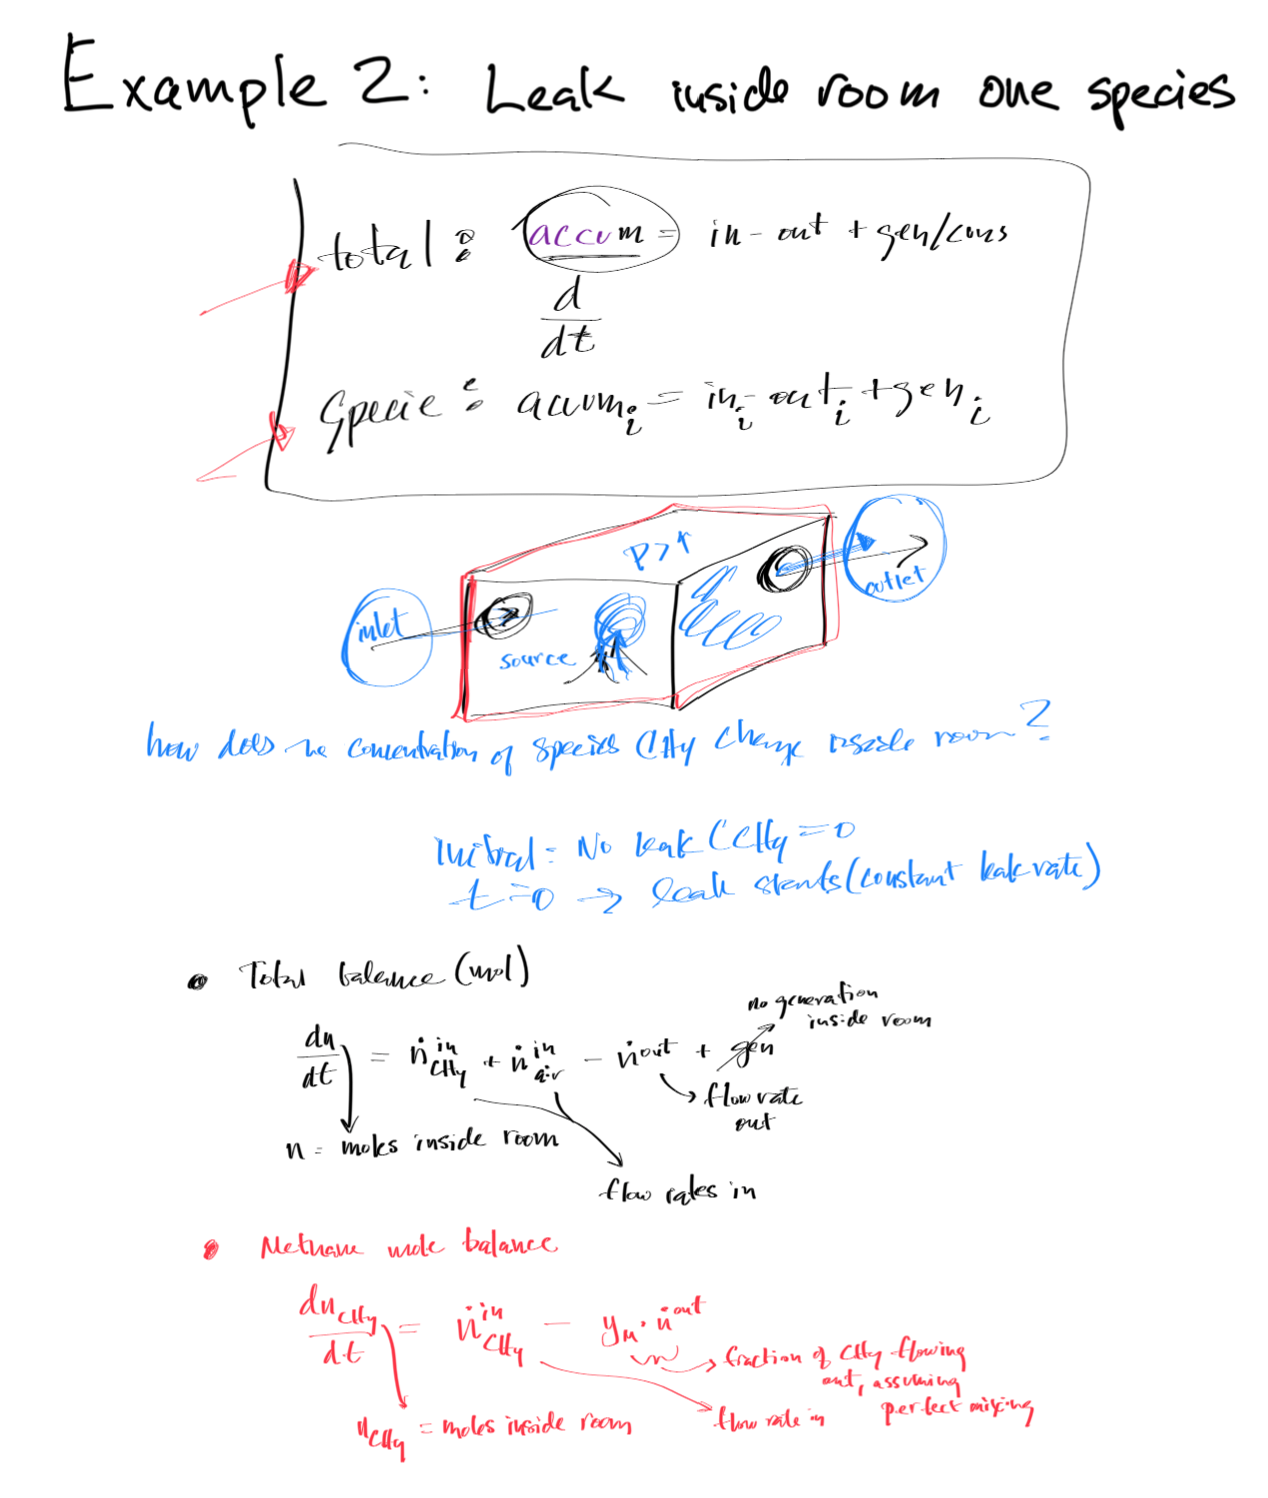 Example 2: Leak inside room one species
total: accum = in - out + gen/cons
d
dt
Specie: accum_i = in_i - out_i + gen_i
P > 1
inlet
outlet
source
how does the concentration of species CH4 change inside room?
Initial: No leak CCH4 = 0
t = 0 → leak starts (constant leak rate)
• Total balance (mol)
no generation
inside room
dn/dt = ṅ_CH4^in + ṅ_air^in - ṅ^out + gen
flow rate
out
n = moles inside room
flow rates in
• Methane mole balance
dn_CH4/dt = ṅ_CH4^in - y_M · ṅ^out
fraction of CH4 flowing
out, assuming
perfect mixing
flow rate in
n_CH4 = moles inside room